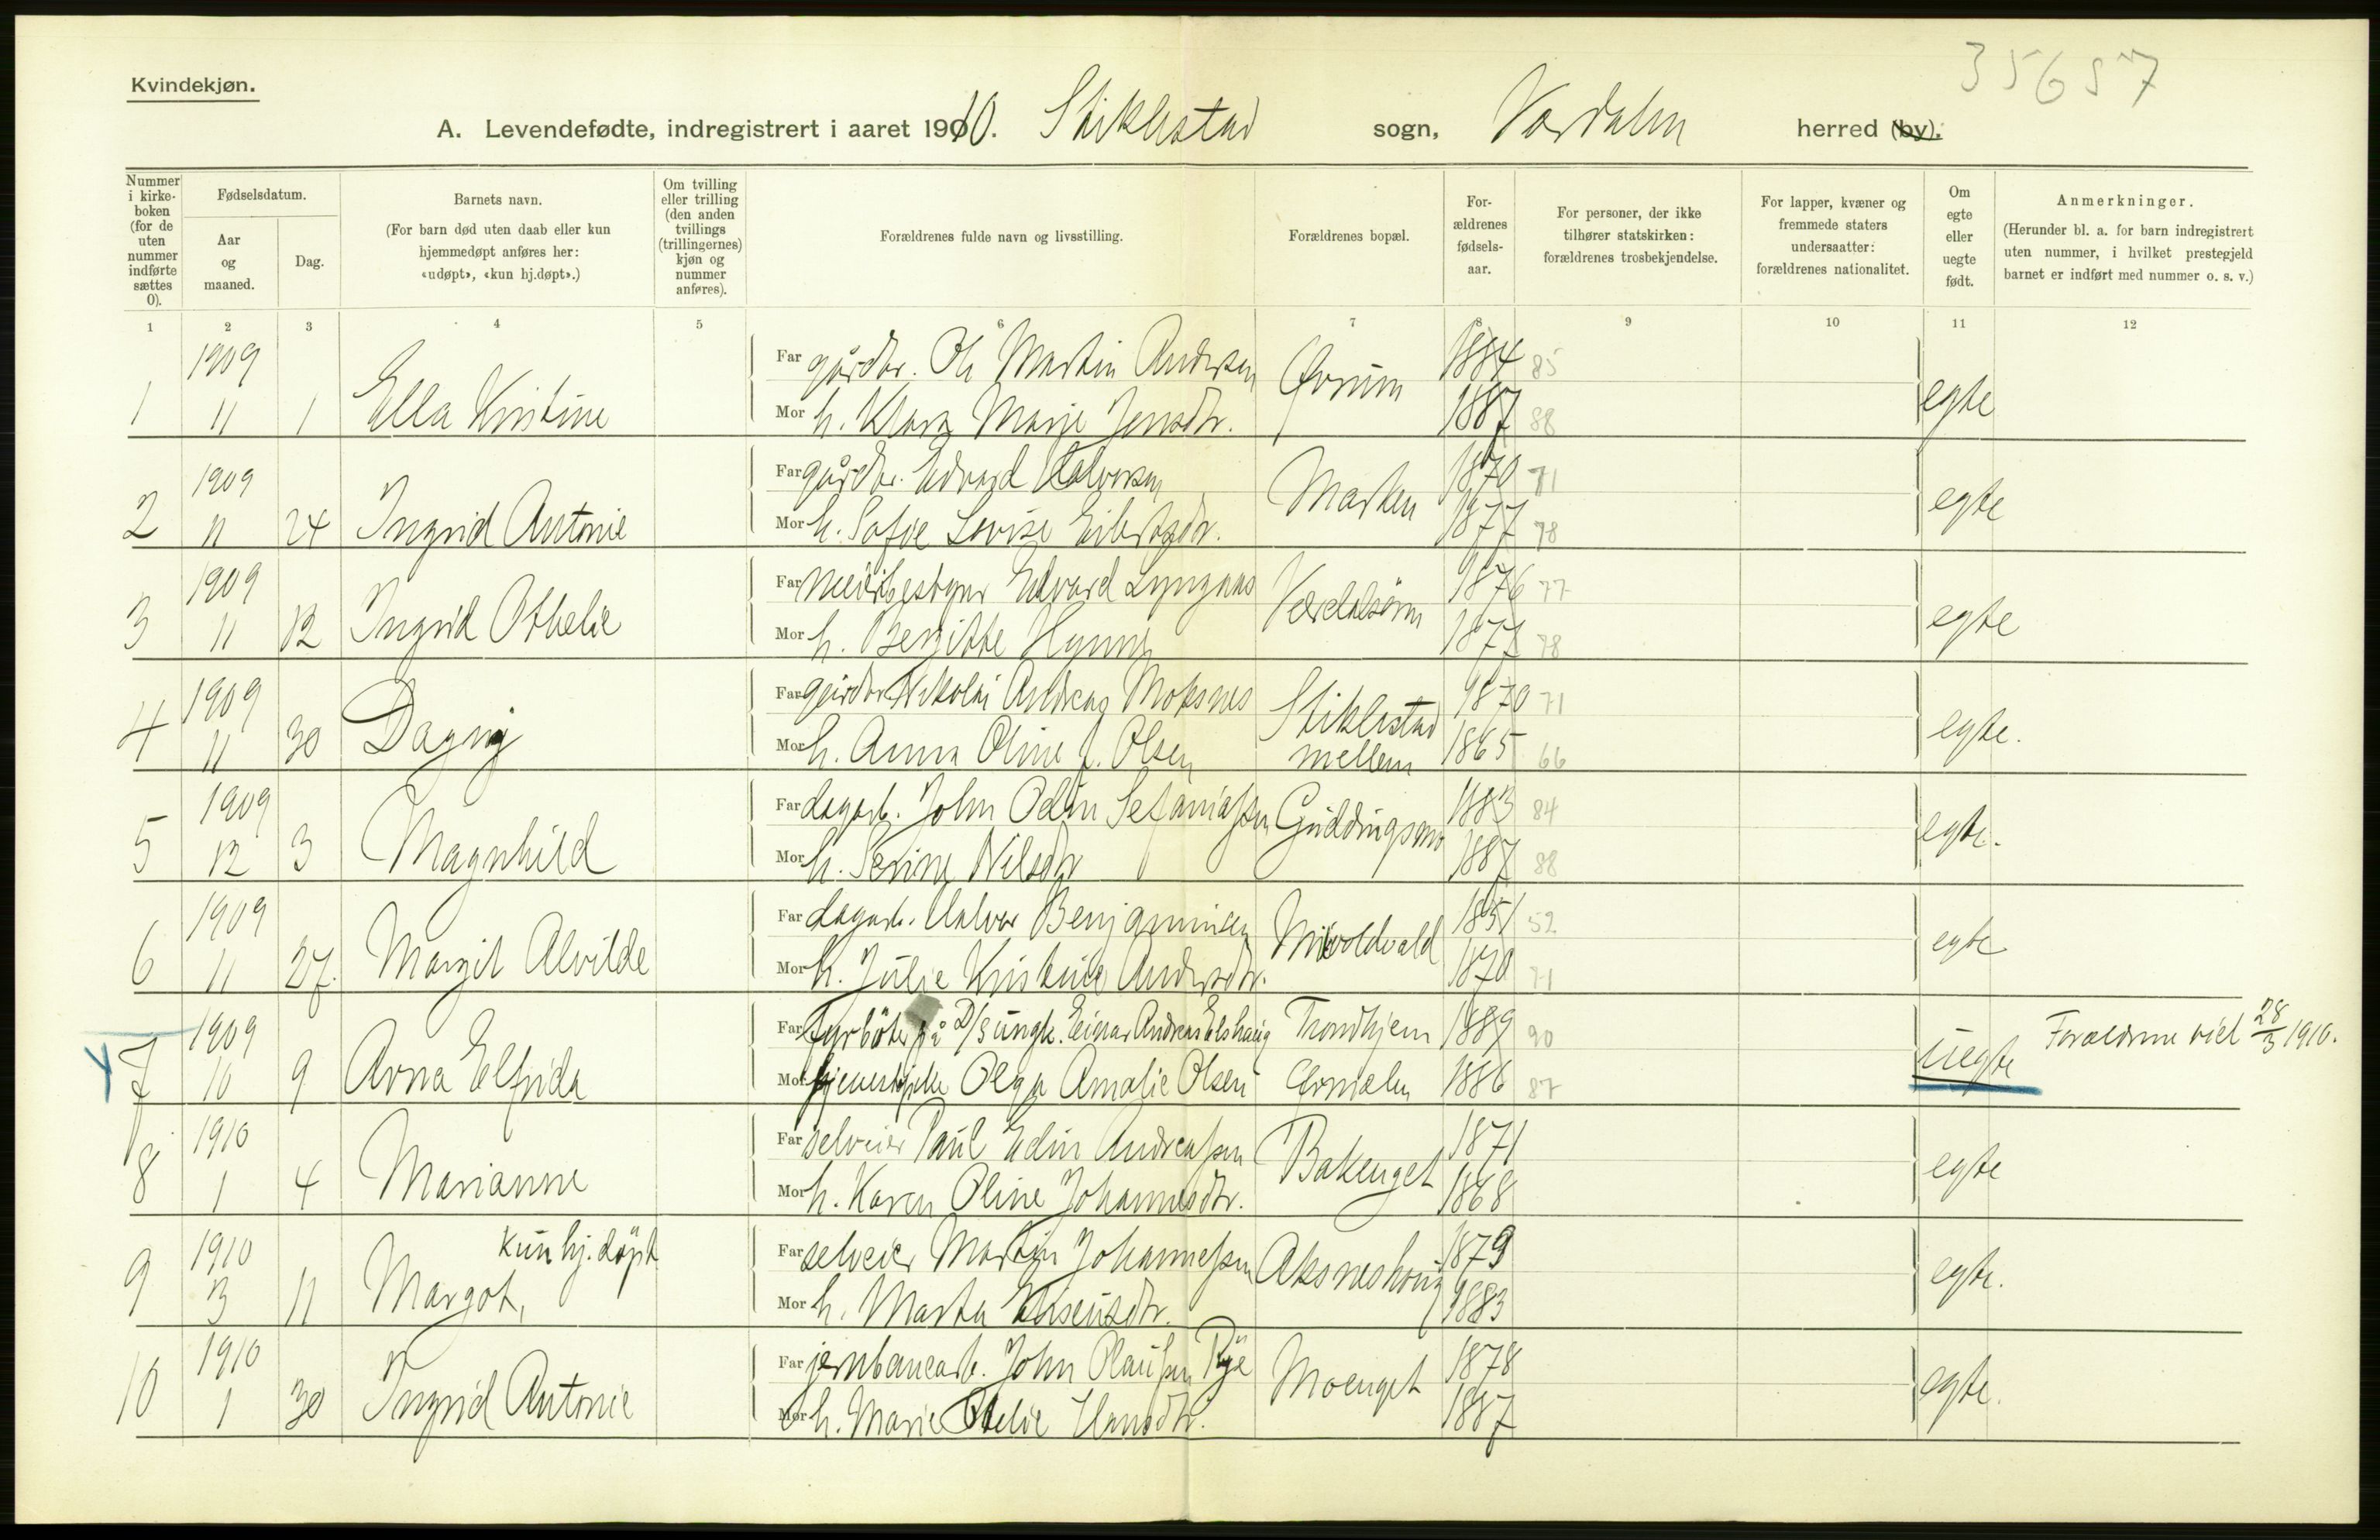 35657
Kvindekjøn.
A. Levendefødte, indregistrert i aaret 1910. Stiklestad sogn, Værdalen herred (by).
Nummer i kirkeboken (for de uten nummer indførte sættes 0).
Fødselsdatum.
Aar og maaned.
Dag.
Barnets navn.
(For barn død uten daab eller kun hjemmedøpt anføres her: «udøpt», «kun hj.døpt».)
Om tvilling eller trilling (den anden tvillings (trillingernes) kjøn og nummer anføres).
Forældrenes fulde navn og livsstilling.
Forældrenes bopæl.
Forældrenes fødselsaar.
For personer, der ikke tilhører statskirken: forældrenes trosbekjendelse.
For lapper, kvæner og fremmede staters undersaatter: forældrenes nationalitet.
Om egte eller uegte født.
Anmerkninger.
(Herunder bl. a. for barn indregistrert uten nummer, i hvilket prestegjeld barnet er indført med nummer o. s. v.)
1 2 3 4 5 6 7 8 9 10 11 12
1909 Far gårdbr. Ole Martin Andersen Ørmin 1884 85
1 11 1 Ella Kristine Mor h. Klara Marie Jensdtr. 1887 88 egte
1909 Far gårdbr. Edvard Halvorsen 1870 71
2 11 24 Ingrid Antonie Mor h. Sofie Lovise Eilertsdtr. Marken 1877 78 egte
1909 Far meieribestyrer Edvard Lyngaas Værdalsøren 1876 77
3 11 12 Ingrid Othelie Mor h. Bergitte Hynne 1877 78 egte
1909 Far gårdbr Nikolai Andreas Moksnes Stiklestad 1870 71
4 11 30 Dagny Mor h. Anna Oline J. Olsen mellem 1865 66 egte.
1909 Far dagarb. John Odin Sefaniassen Guddingsmo 1883 84
5 12 3 Magnhild Mor h. Serine Nilsdtr 1887 88 egte.
1909 Far dagarb. Halvor Benjaminsen 1851 52
6 11 27. Margit Alvilde Mor h. Julie Kristine Andersdtr. 1870 71 egte
1909 Far Fyrbøter på D/S ungk. Einar Andreas Elshaug Trondhjem 1889 90 Forældrene viet 28/3 1910.
7 10 9 Arna Elfrida Mor tjenestepike Olga Amalie Olsen 1886 87 uegte
1910 Far selveier Paul Edin Andreassen 1871
8 1 4 Marianne Mor h. Karen Oline Johannesdtr. Bakenget 1868 egte
1910 kun hj. døpt Far selveier Martin Johannessen Aksneshaug 1879
9 3 11 Margot, Mor h. Marta 1883 egte.
1910 Far jernbanearb. John Olausen Rye 1878
10 1 30 Ingrid Antonie Mor h. Marie Otelie Hansdtr. Moenget 1887 egte.